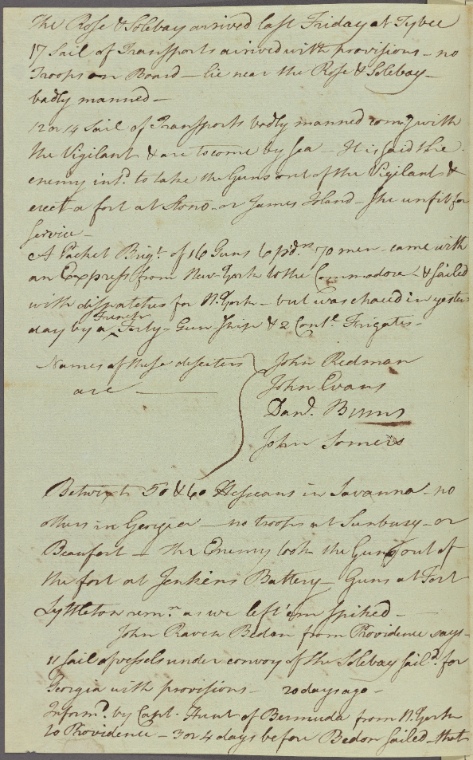 The Rose & Solebay arrived last Friday at Tybee
17 Sail of Transports arrived with provisions – no
Troops on Board – lie near the Rose & Solebay –
badly manned –
12 or 14 Sail of Transports badly manned comg. with
the Vigilant & are to come by Sea – It is said the
enemy intd. to take the Guns out of the Vigilant &
erect a fort at Stono – or James Island – She unfit for
Service –
A Packet Brigt. of 16 Guns 6 pdrs. 70 men – came with
an Express from New York to the Commodore – & sailed
with dispatches for N. York – but was chased in yester
day by a French Fifty – Gun Ship & 2 Contl. Frigates –
Names of these deserters
are
John Redman
John Evans
Danl. Binns
John Somers
Betwixt 50 & 60 Hessians in Savanna – no
others in Georgia – no troops at Sunbury – or
Beaufort – the Enemy took the Guns out of
the fort at Jenkins Battery – Guns at Fort
Lyttleton remn. as we left 'em spiked –
John Raven Bedon from Providence says –
11 sail of vessels under convoy of the Solebay said. for
Georgia with provisions – 20 days ago –
Informd. by Capt. Hunt of Bermuda from N. York
to Providence – 3 or 4 days before Bedon sailed – that